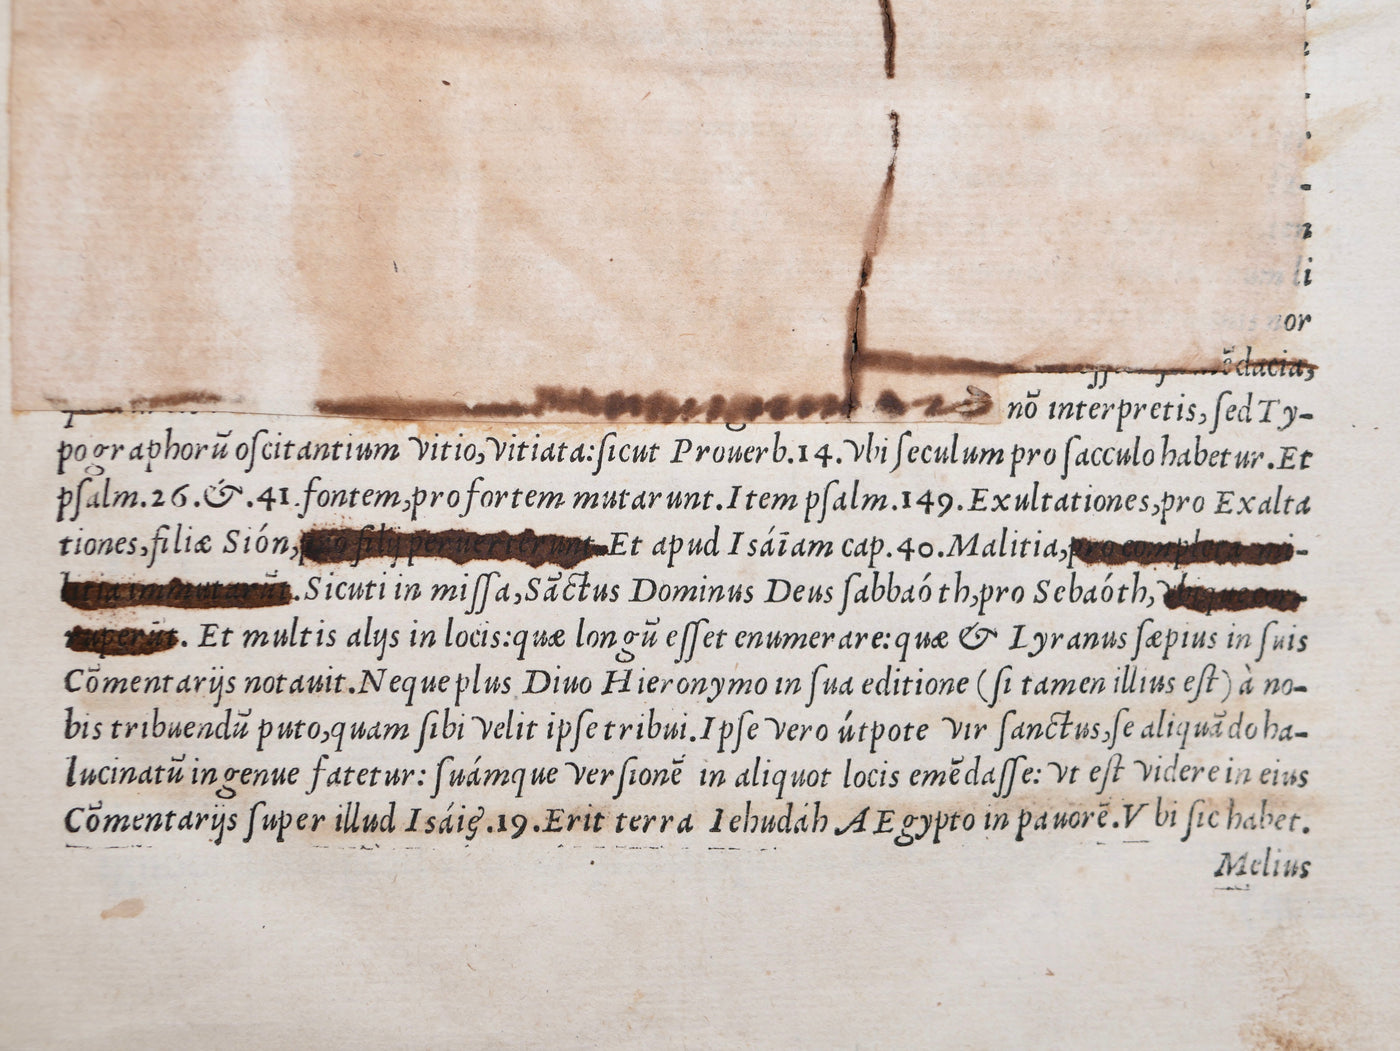 li
or
ẽdacia,
nõ interpretis, ſed Ty-
pographorũ oſcitantium vitio, vitiata: ſicut Prouerb. 14. vbi ſeculum pro ſacculo habetur. Et
pſalm. 26. & . 41. fontem, pro fortem mutarunt. Item pſalm. 149. Exultationes, pro Exalta
tiones, filiæ Sión, pro filij peruerterunt. Et apud Isáiam cap. 40. Malitia, pro completa mi-
litia immutarũt. Sicuti in miſſa, Sãctus Dominus Deus ſabbaóth, pro Sebaóth, vbique cor-
ruperũt. Et multis alijs in locis: quæ longũ eſſet enumerare: quæ & Lyranus ſæpius in ſuis
Cõmentarijs notauit. Neque plus Diuo Hieronymo in ſua editione (ſi tamen illius eſt) à no-
bis tribuendũ puto, quam ſibi velit ipſe tribui. Ipſe vero útpote vir ſanctus, ſe aliquãdo ha-
lucinatũ ingenue fatetur: ſuámque verſionẽ in aliquot locis emẽdaſſe: vt eſt videre in eius
Cõmentarijs ſuper illud Isáię. 19. Erit terra Iehudáh AEgypto in pauorẽ. Vbi ſic habet.
Melius